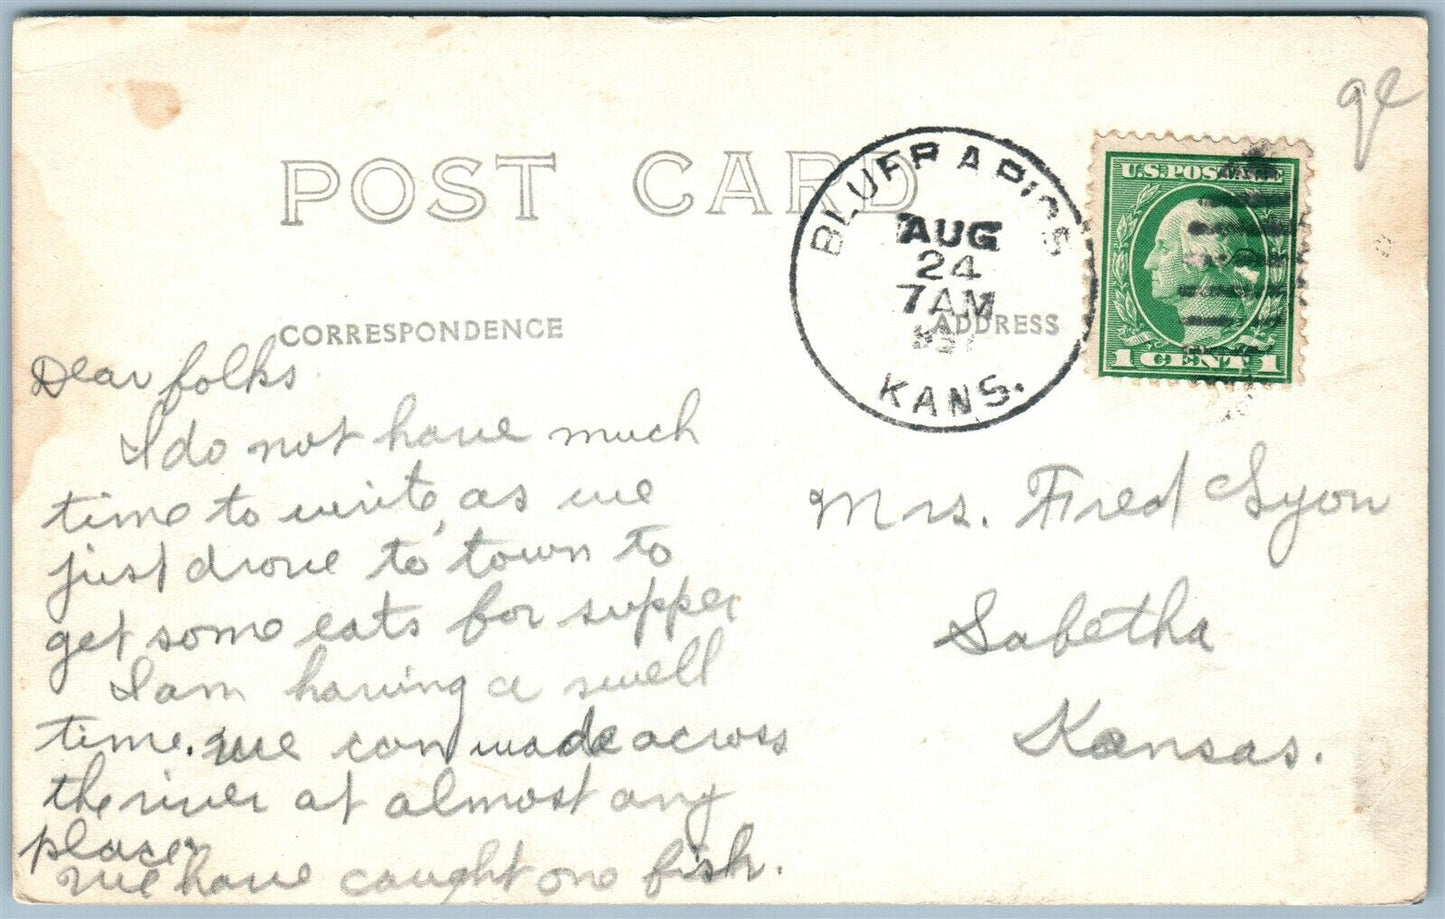 POST CARD
CORRESPONDENCE
ADDRESS
BLUFF RAPIDS
AUG
24
7 AM
KANS.
U.S. POSTAGE
1 CENT 1
Dear folks
I do not have much
time to write, as we
just drove to town to
get some eats for supper
I am having a swell
time. we can wade across
the river at almost any
place.
We have caught one fish.
Mrs. Fred Lyon
Sabetha
Kansas.